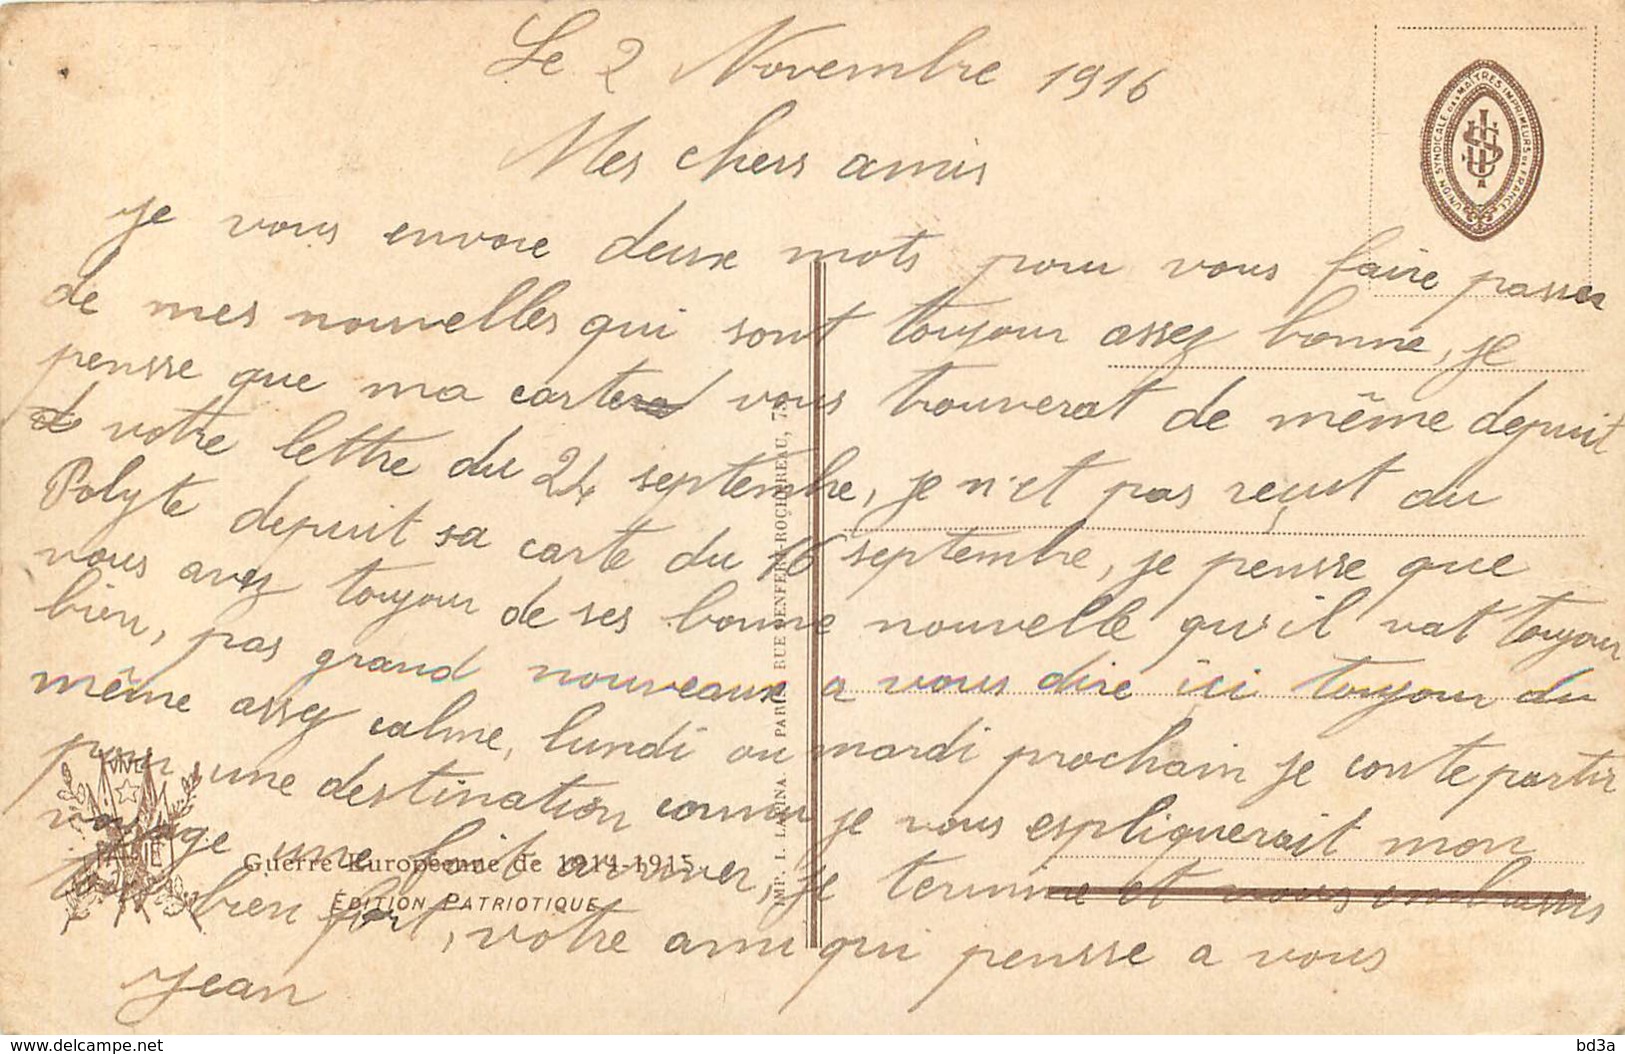 Le 2 Novembre 1916
Mes chers amis
je vous envoie deux mots pour vous faire passer
de mes nouvelles qui sont toujour assez bonne, je
pensse que ma carte vous trouverat de même depuit
votre lettre du 24 septembre, je n'et pas reçut du
Polyte depuit sa carte du 16 septembre, je pensse que
vous avez toujour de ses bonne nouvelle qu'il vat toujour
bien, pas grand nouveaux a vous dire ici toujour du
même assez calme, lundi ou mardi prochain je conte partir
pour une destination connu je vous espliquerait mon
voyage une foit arriver, je termine et vous embrasses
tous bien fort, votre ami qui pensse a vous
Jean
UNION SYNDICALE DES MAITRES IMPRIMEURS DE FRANCE
IMP. I. LAPINA - PARIS RUE DENFERT-ROCHEREAU, 75
VIVE
PATRIE
Guerre Européenne de 1914-1915
ÉDITION PATRIOTIQUE
www.delcampe.net
bd3a